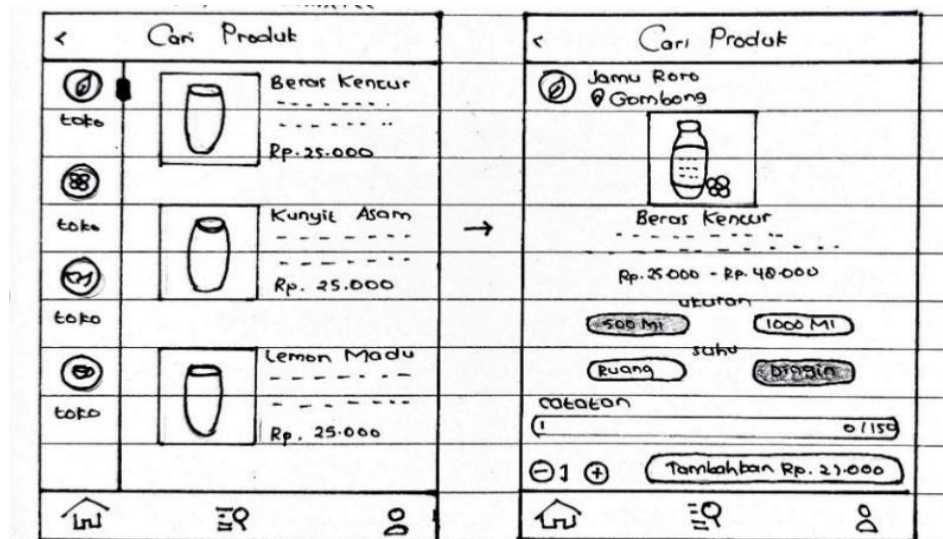 < Cari Produk
toko
toko
toko
toko
Beras Kencur
Rp. 25.000
Kunyit Asam
Rp. 25.000
Lemon Madu
Rp. 25.000
< Cari Produk
Jamu Roro
Gombong
Beras Kencur
Rp. 25.000 - Rp. 40.000
ukuran
500 Ml 1000 Ml
suhu
Ruang Dingin
catatan
0/150
1 + Tambahkan Rp.